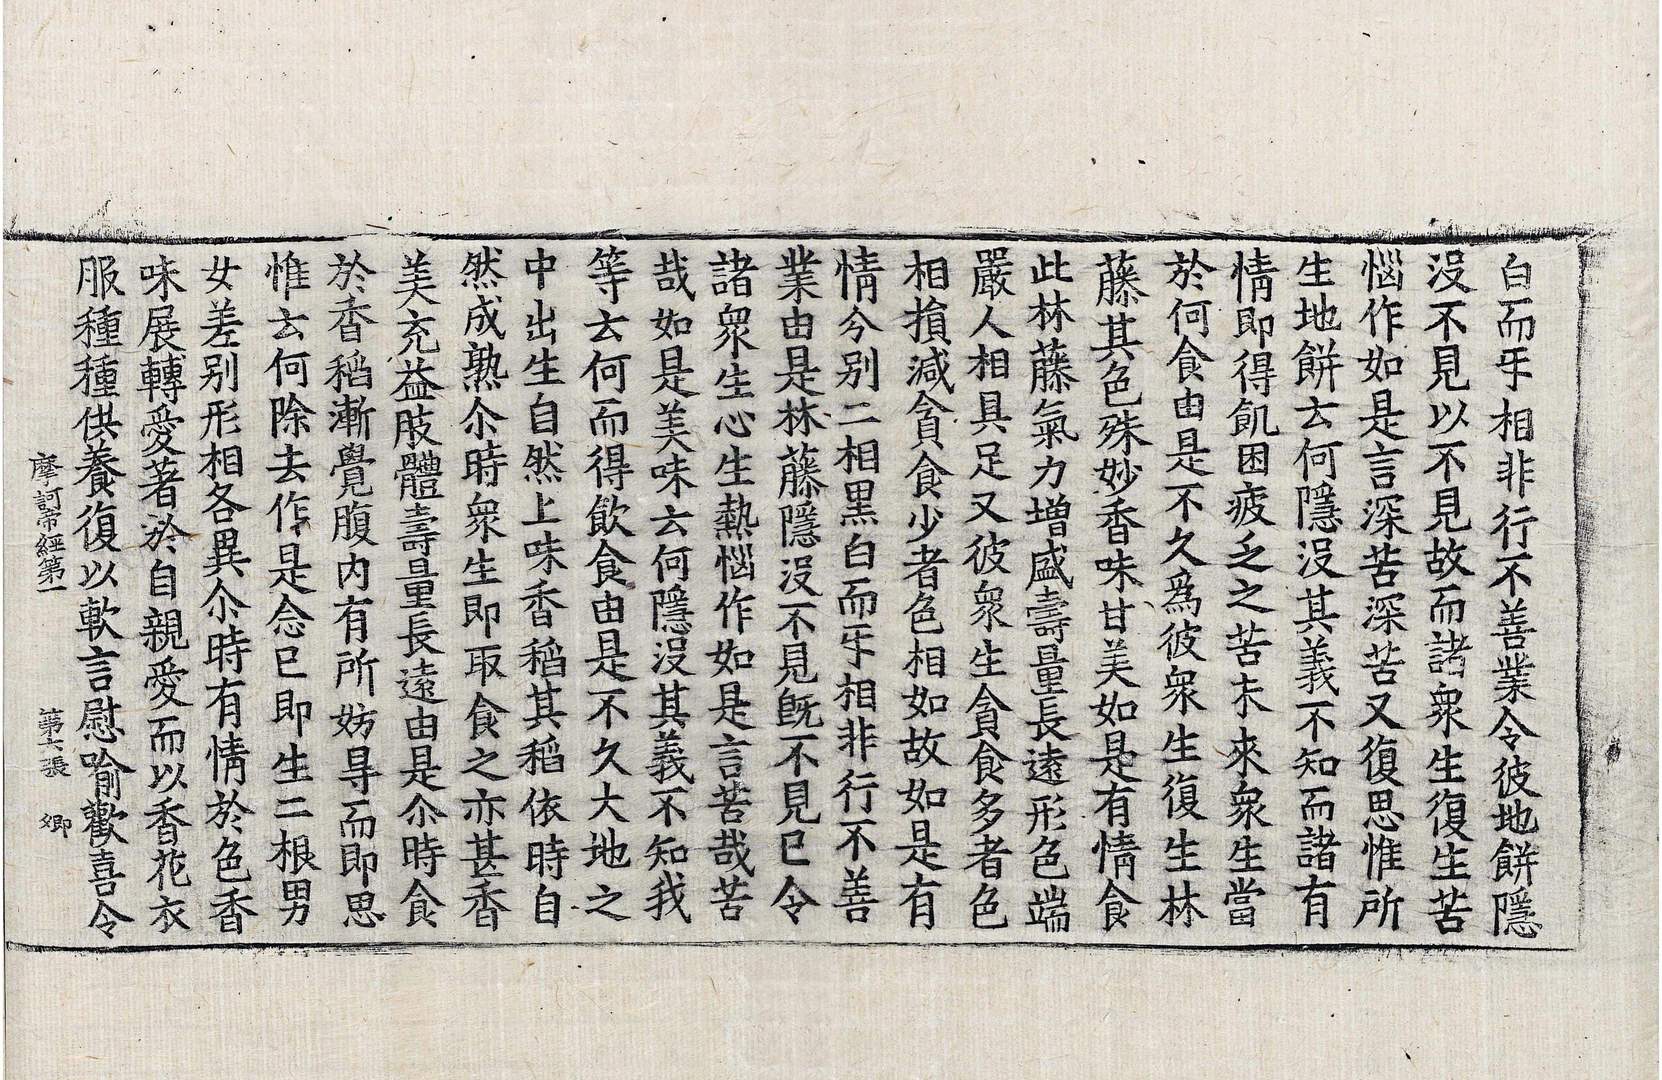 白而㸦相非行不善業令彼地餅隱
沒不見以不見故而諸衆生復生苦
惱作如是言深苦深苦又復思惟所
生地餅云何隱沒其義不知而諸有
情即得飢困疲乏之苦未來衆生當
於何食由是不久爲彼衆生復生林
藤其色殊妙香味甘美如是有情食
此林藤氣力增盛壽量長遠形色端
嚴人相具足又彼衆生貪食多者色
相損減貪食少者色相如故如是有
情分別二相黑白而㸦相非行不善
業由是林藤隱沒不見旣不見已令
諸衆生心生熱惱作如是言苦哉苦
哉如是美味云何隱沒其義不知我
等云何而得飮食由是不久大地之
中出生自然上味香稻其稻依時自
然成熟尒時衆生即取食之亦甚香
美充益肢體壽量長遠由是尒時食
於香稻漸覺腹內有所妨㝵而即思
惟云何除去作是念已即生二根男
女差別形相各異尒時有情於色香
味展轉愛著於自親愛而以香花衣
服種種供養復以軟言慰喻歡喜令
摩訶帝經第一 第六張 卿